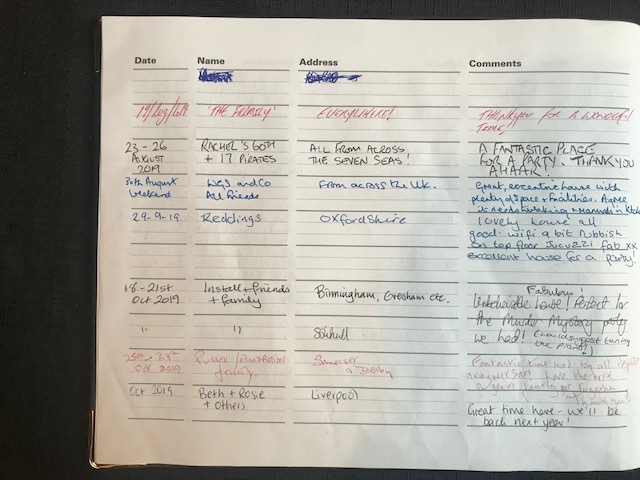 Date Name Address Comments
19/Aug/ THE FAMILY EVERYWHERE! THANKYOU FOR A WONDERFUL
TIME!
23 - 26 RACHEL'S 60TH ALL FROM ACROSS A FANTASTIC PLACE
AUGUST + 17 PIRATES THE SEVEN SEAS! FOR A PARTY. THANK YOU
2019 AHAAR!
30th August and Co From across the UK. Great, eccentric house with
weekend All friends plenty of space + facilities. Agree
it needs
29-9-19 Reddings Oxfordshire lovely house all
good. wifi a bit rubbish
on top floor Jucuzzi fab xx
excellent house for a party!
18 - 21st Install + friends Birmingham, Gresham etc. Fabulous!
Oct 2019 + family Unbelievable house! Perfect for
the Murder Mystery party
" " we had! (would suggest tuning
the piano!)
25th - 28th Russell / Somerset Fantastic time had by all
Oct 2019 family. & Derby
Oct 2019 Beth + Rosie Liverpool
+ others Great time here - we'll be
back next year!